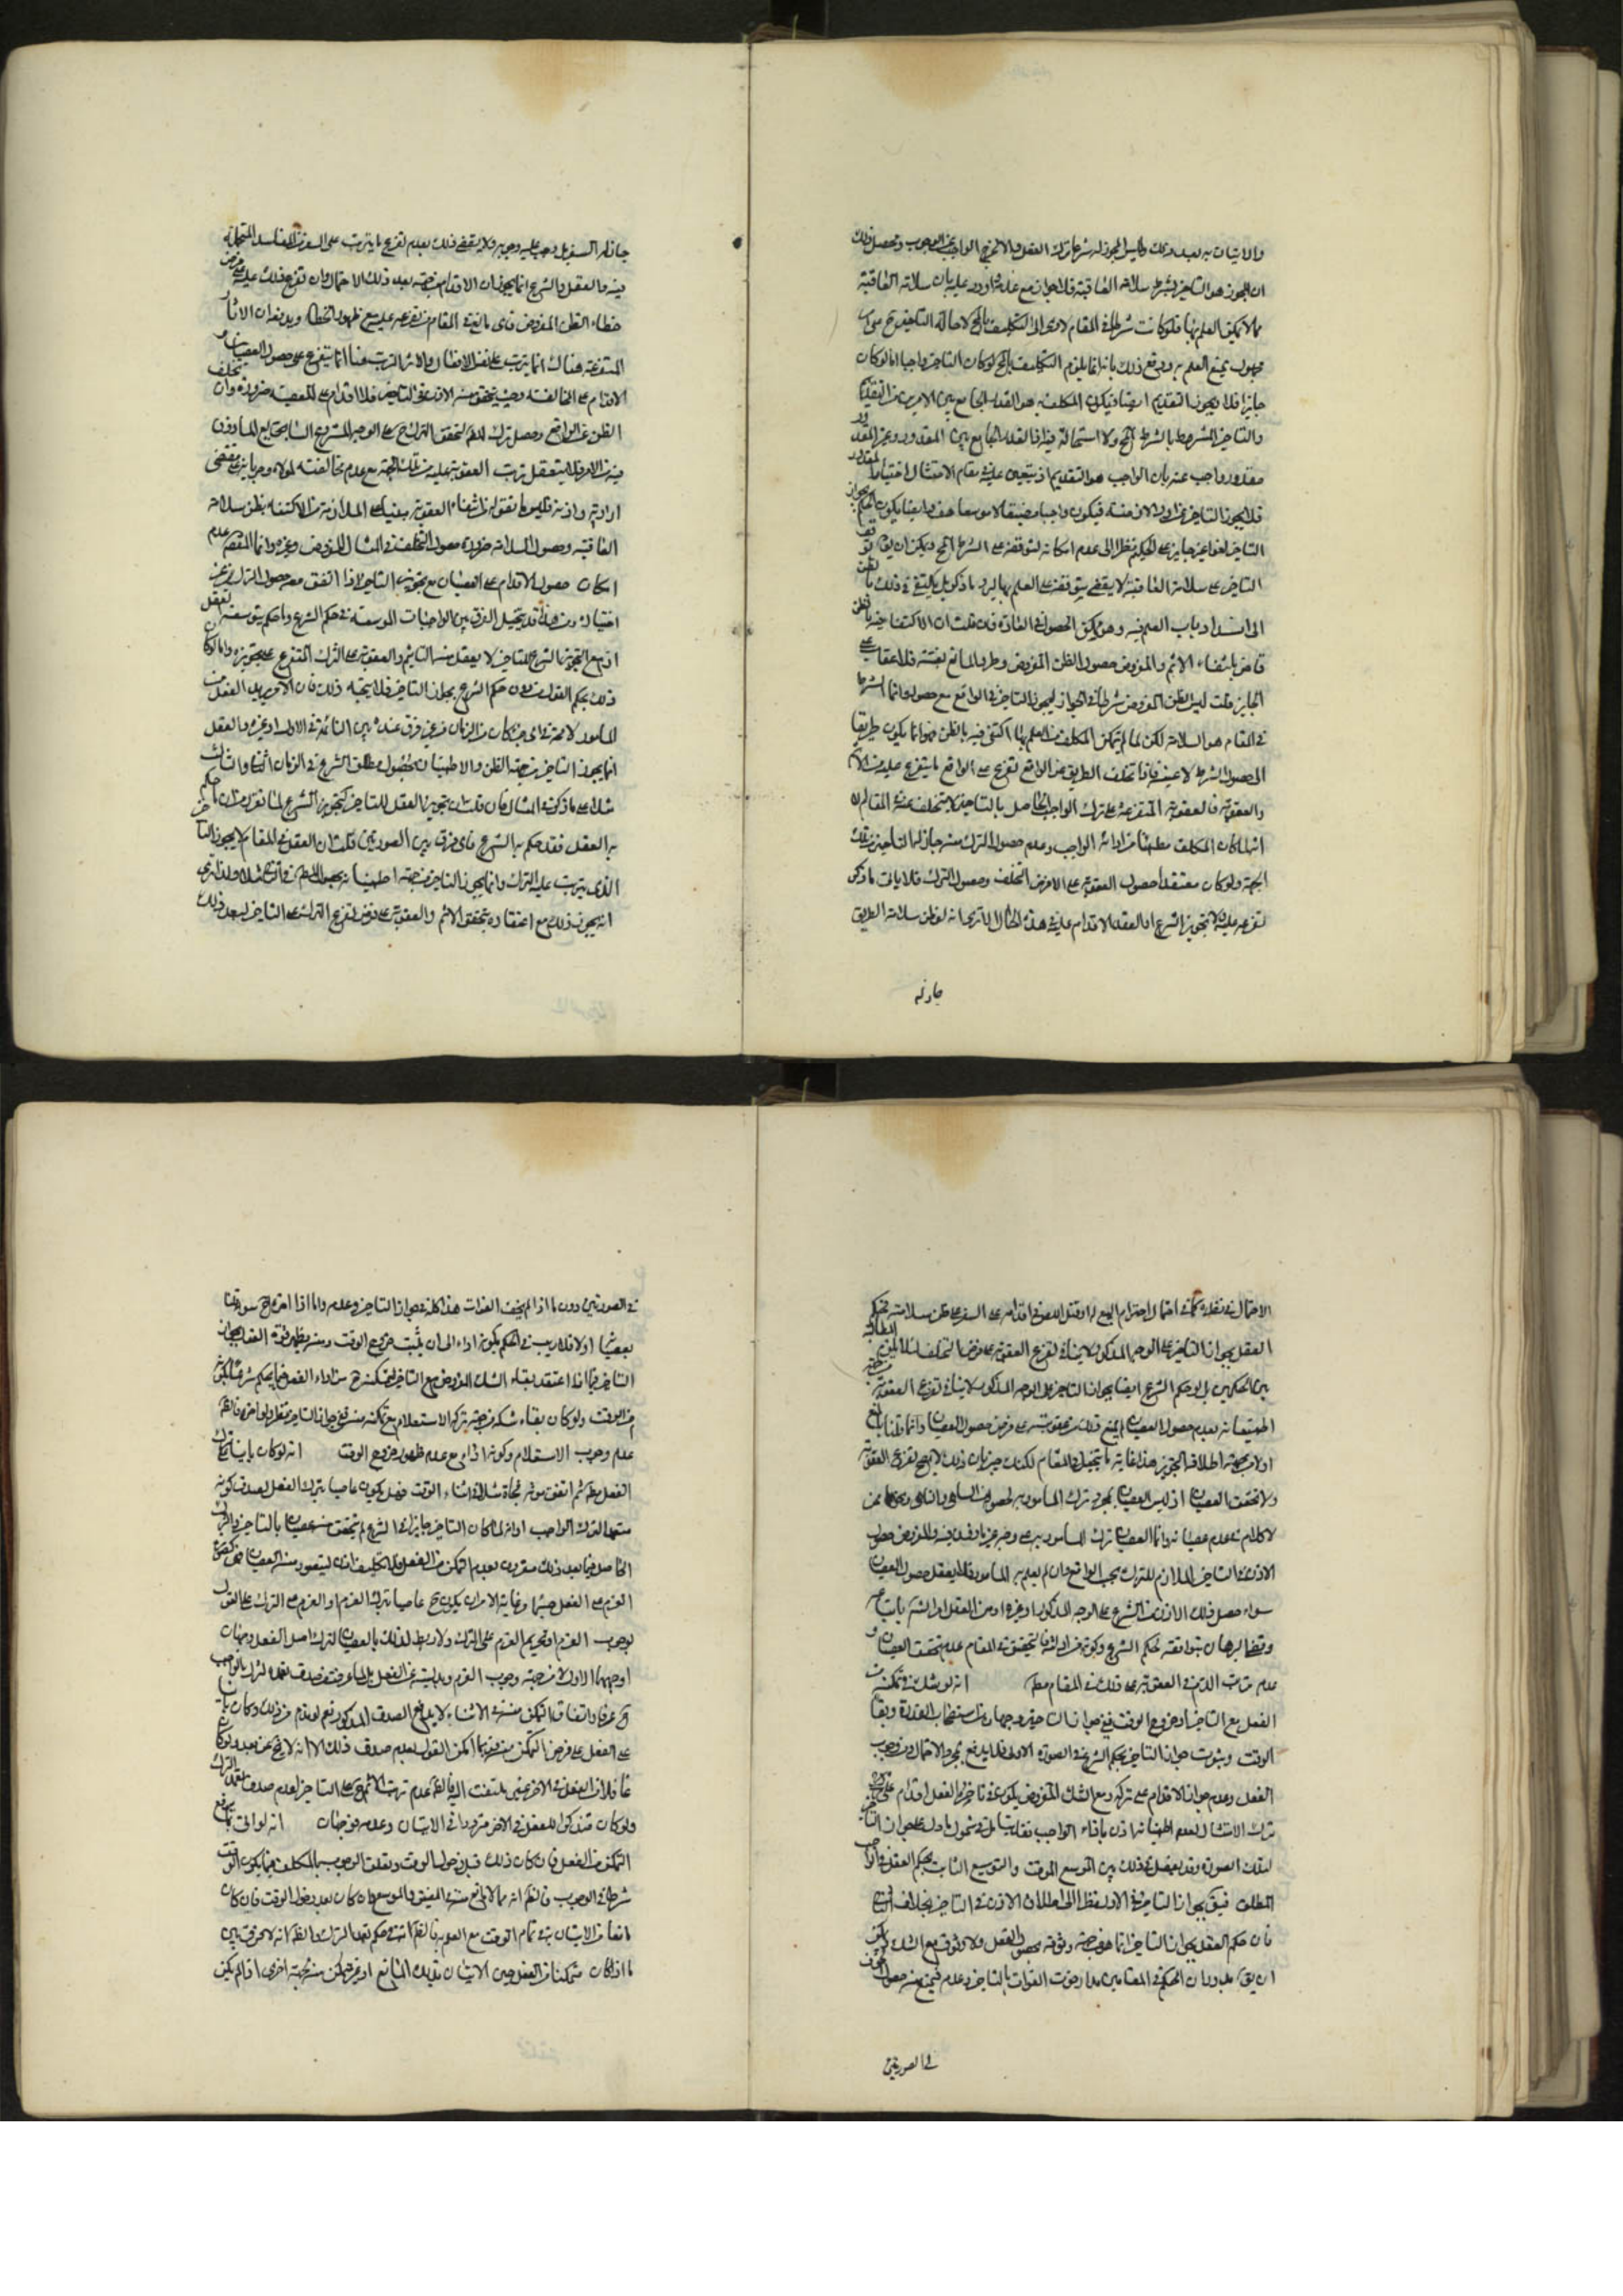 والاتيان به بعد ذلك وليس المجوز له شرعا ترك الفعل والا لخرج الواجب عن الوجوب وتحصل ذلك
ان المجوز هو التاخير بشرط سلامة العاقبة فلا جواز مع عدمها واورد عليه بان سلامة العاقبة
مما لا يمكن العلم بها فلو كانت شرطا في المقام لادى الى التكليف بالمح لاحالة التاخير ح على
مجهول يمتنع العلم به ودفع ذلك بانه انما يلزم التكليف بالمح لو كان التاخير واجبا اما لو كان
جايزا فلا لجواز التقديم ايضا فيكون المكلف به هو القدر الجامع بين الامرين من التقديم
والتاخير المشروط بالشرط المح ولا استحالة فيه اذ القدر الجامع بين المقدور وغير المقدور
مقدور واجب عنه بان الواجب هو التقديم اذ يتعين عليه في مقام الامتثال اختيار المقدور
فلا يجوز التاخير عن اول الازمنة فيكون واجبا مضيقا لا موسعا هف وايضا يكون الحكم بجواز
التاخير لغوا غير جايز على الحكيم نظرا الى عدم امكانه لتوقفه على الشرط المح ويمكن ان يق توقف
التاخير على سلامة العاقبة لا يقضي بتوقفه على العلم بها ليرد ما ذكر بل يكتفى في ذلك بالظن
الى انسداد باب العلم فيه وهو ممكن الحصول في العادة فان قلت ان الاكتفا فيه بالظن
قاض بانتفاء الاثم والمفروض حصول الظن المفروض وطرو المانع بغتة فلا عقاب على
الجايز قلت ليس الظن المفروض شرطا في الجواز ليجوز التاخير في الواقع مع حصوله وانما الشرط
في المقام هو السلامة لكن لما لم يتمكن المكلف من العلم بها اكتفى فيه بالظن فهو انما يكون طريقا
الى حصول الشرط لا عينه فاذا تخلف الطريق عن الواقع تفرع على الواقع ما يتفرع عليه من الاثم
والعقوبة فالعقوبة المتفرعة على ترك الواجب الحاصل بالتاخير لا يتخلف عنه في المقام
انه لما كان المكلف مطمئنا من ادائه الواجب وعدم حصول الترك منه جاز له التاخير من تلك
الجهة ولو كان معتقدا حصول العقوبة على الامر عند التخلف وحصول الترك فلا ينافي ما ذكر
تفرعه عليه تجويز الشرع او العقل الاقدام عليه في هذا الحال الا ترى انه لو ظن سلامة الطريق
جاز له
جاز له السفر بل وجب عليه وجوبه ولا يقضي ذلك بعدم تفرع ما يترتب على السفر من المفاسد المحتملة
فيه فالعقل والشرع انما يجوزان الاقدام بمقتضى بعد ذلك الاحتمال وان تفرع ذلك عليه على فرض
خطاء الظن المفروض فاى مانع في المقام من تفرعه عليه مع ظهور الخطاء ويدفعه ان الاثار
المتفرعة هناك انما يترتب على نفس الافعال والاثر المترتب هنا انما يتفرع على حصول العصيان و
الاقدام على المخالفة وحيث يتحقق منه الاذن في التاخير فلا اقدام على المعصية ضرورة وان تخلف
الظن عن الواقع وحصل ترك للمأمور لتحقق الترك ح على الوجه المشروع الشايع المأذون
فيه من الامر فلا يتعقل ترتب العقوبة عليه من تلك الجهة مع عدم مخالفته لمولاه وجريانه على مقتضى
ارادته واذنه فليس ما نقوله من انتفاء العقوبة مبنيا على الملازمة من الاكتفاء بظن سلامة
العاقبة وحصول السلامة ضرورة حصول التخلف في المثال المفروض وغيره وانما المقصود عدم
امكان حصول الاقدام على العصيان مع تجويزه التاخير اذا اتفق معه حصول الترك من غير
اختياره ومن هنا قد يتخيل الفرق بين الواجبات الموسعة في حكم الشرع وما حكم بتوسعته العقل
اذ مع التجويز الشرعي للتاخير لا يعقل منه التاثيم والعقوبة على الترك المتفرع على تجويزه واما لو كان
ذلك بحكم العقل من دون حكم الشرع بجواز التاخير فلا يتجه ذلك فان الامر يريد الفعل من
المأمور لا محة في اى جزء كان من الزمان من غير فرق عنده بين التأدية في الاول او غيره والعقل
انما يجوز التاخير من جهة الظن والاطمينان بحصول مطلق الشرع في الزمان الثاني والثالث
مثلا على ما ذكر في المثال فان قلت ان تجويز العقل للتاخير كتجويز الشرع لما تقرر من ان ما حكم
به العقل فقد حكم به الشرع فاى فرق بين الصورتين قلت ان العقل في المقام لا يجوز التاخير
الذى يترتب عليه الترك وانما يجوز التاخير من جهة اطمينانه بحصول الفعل في الزمان الثاني مثلا ولذا ترى
انه يجوز ذلك مع اعتقاده بتحقق الاثم والعقوبة على فرض تفرع الترك على التاخير لبعد ذلك
الاحتمال في نظره كما في احتمال انهدام البيع له او قتل اللصوص في اقدامه على السفر على ظن سلامة فحكم
العقل بجواز التاخير على الوجه المذكور لا ينافي تفرع العقوبة على فرض التخلف
بين الحكمين بل وحكم الشرع ايضا بجواز التاخير على الوجه المذكور لا ينافي تفرع العقوبة
اطمينانه بعدم حصول العصيان لم يمنع ذلك من عقوبته على فرض حصول العصيان وانما قلنا بالمنع
اولا من جهة اطلاقه التجويز هذا غاية ما يتخيل في المقام لكنك خبير بان ذلك لا يصحح تفرع العقوبة
ولا تحقق العصيان اذ ليس العصيان بمجرد ترك المأمور به لحصوله في الساهي والناسي ونحوهما ممن
لا كلام في عدم عصيانه وانما العصيان ترك المأمور به على وجه غير مأذون فيه والمفروض حصول
الاذن في التاخير الملازم للترك بحسب الواقع وان لم يعلم به المأمور فلا يعقل حصول العصيان
سواء حصل ذلك الاذن من الشرع على الوجه المذكور او غيره او من العقل او الشرع
وقضا البرهان بتوافقه لحكم الشرع وكونه من ادلته فالتحقيق في المقام عدم تحقق العصيان و
عدم ترتب الذم والعقوبة على ذلك في المقام مطم انه لو شك في تمكنه من
الفعل مع التاخير او خروج الوقت ففي جواز التاخير وجهان من استصحاب القدرة وبقاء
الوقت وثبوت جواز التاخير بحكم الشرع في الصورة الاولى فلا يدفع بمجرد الاحتمال ومن وجوب
الفعل وعدم جواز الاقدام على تركه ومع الشك المفروض يكون في تاخير الفعل اقدام على
ترك الامتثال لعدم اطمينانه اذن باداء الواجب نظرا
لتلك الصورة وقد يفصل في ذلك بين الموسع الموقت والتوسيع الثابت بحكم العقل والواجب
المطلق فيق بجواز التاخير في الاول نظرا الى اطلاق الاذن في التاخير بخلاف الثاني
فان حكم العقل بجواز التاخير انما هو من جهة وثوقه بحصول الفعل ولا وثوق مع الشك ويمكن
ان يق بدوران الحكم في المقامين مدار خوف الفوات بالتاخير وعدمه فيمنع منه مع حصول الخوف
في الصورتين
في الصورتين دون ما اذا لم يخف الفوات هذا كله في جواز التاخير وعدمه واما اذا اخره ح سواء قلنا
بعصيانه او لا فلا ريب في الحكم بكونه اداء الى ان يثبت خروج الوقت ومنه يظهر قوة القول بجواز
التاخير فيما اذا اعتقد بقاء الشك المفروض مع التاخير لتمكنه ح من اداء الفعل فيما يحكم شرعا بكونه
من الوقت ولو كان بقاء شكه من جهة تركه الاستعلام مع تمكنه منه ففي جواز التاخير نظر ولو اخره فالظ
عدم وجوب الاستعلام وكونه اداء مع عدم ظهور خروج الوقت انه لو كان بانيا على ترك
الفعل مطم ثم اتفق موته فجأة مثلا في اثناء الوقت فهل يكون عاصيا بترك الفعل لصدق كونه
متعمدا لترك الواجب او انه لما كان التاخير جايزا في الشرع لم يتحقق منه عصيان بالتاخير والترك
الحاصل فيما بعد ذلك مقرون بعدم التمكن من الفعل فلا تكليف اذن ليتصور منه العصيان
العزم على الفعل ح وغاية الامر ان يكون ح عاصيا بترك العزم او العزم على الترك على القول
بوجوب العزم او تحريم العزم على الترك ولا ربط لذلك بالعصيان لترك اصل الفعل وجهان
اوجههما الاول لا من جهة وجوب العزم وبدليته عن الفعل بل لما عرفت من صدق تعمده لترك الواجب
ح عرفا واتفاق التمكن منه في الاثناء لا يدفع الصدق المذكور نعم لو ندم من ذلك وكان بانيا
على الفعل على فرض التمكن منه فربما امكن القول بعدم صدق ذلك الا انه لا يخ عن بعد ولو كان
غافلا عن الفعل في الاخر غير ملتفت اليه فالظ عدم ترتب الاثم على التاخير لعدم صدق تعمد الترك
ولو كان متذكرا للفعل في الاخر مترددا في الاتيان وعدمه فوجهان انه لو اتى بما يرفع
التمكن من الفعل فان كان ذلك قبل دخول الوقت وتعلق الوجوب بالمكلف فيما يكون الوقت
شرطا في الوجوب فالظ انه مما لا مانع منه في المضيق والموسع وان كان بعد دخول الوقت فان كان
مانعا من الاتيان به في تمام الوقت مع العلم به فالظ انه في حكم تعمد الترك والظ انه لا فرق بين
ما اذا كان متمكنا من الفعل حين الاتيان بذلك المانع او غير متمكن منه من جهة اخرى اذا لم يكن